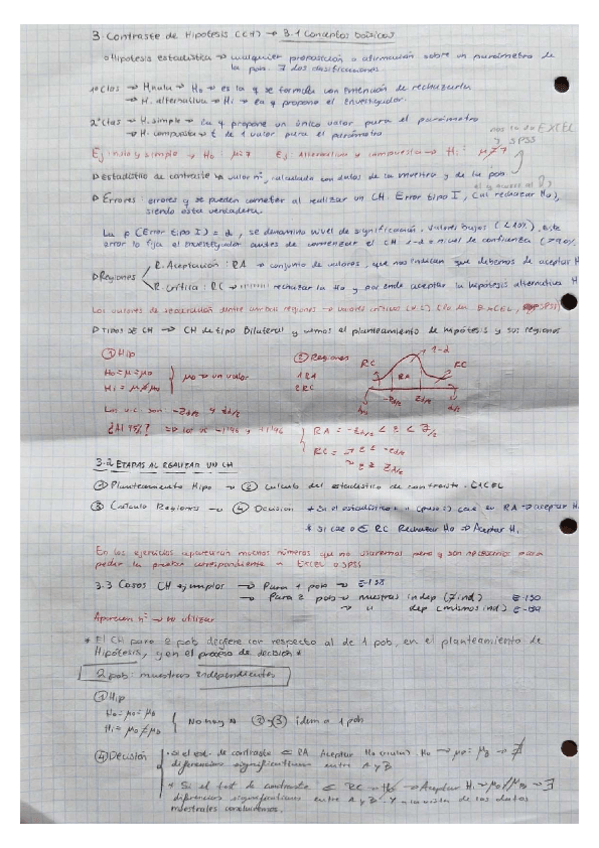 3. Contraste de Hipotesis (CH) → 3.1 Conceptos básicos
Hipotesis estadística → cualquier proposición o afirmación sobre un parámetro de
la pob. 2 dos clasificaciones
1º clas → H. nula → H₀ → es la q se formula con intención de rechazarla
→ H. alternativa → H₁ → la q propone el investigador.
2º clas → H. simple → la q propone un único valor para el parámetro
→ H. compuesta → de 1 valor para el parámetro
nos la da EXCEL
y SPSS
Ej. nula y simple → H₀: μ=7 Ej. Alternativa y compuesta → H₁: μ≠7
▷ Estadístico de contraste → valor nº, calculado con datos de la muestra y de la pob
▷ Errores: errores q se pueden cometer al realizar un CH. Error tipo I, (al rechazar H₀),
siendo esta verdadera.
La p (Error tipo I) = α, se denomina nivel de significación. Valores bajos (<10%), este
error lo fija el investigador antes de comenzar el CH 1-α = nivel de confianza (>90%
▷ Regiones
R. Aceptación: RA → conjunto de valores, que nos indican que debemos de aceptar H
R. Crítica: RC → rechazar la H₀ y por ende aceptar la hipótesis alternativa H
Los valores de separación entre ambas regiones → valores críticos (v.c) (lo da EXCEL, SPSS)
▷ TIPOS DE CH → CH de tipo Bilateral y vemos el planteamiento de hipótesis y sus regiones
① Hip
② Regiones
H₀ = μ = μ₀
H₁ = μ ≠ μ₀
μ₀ → un valor
1 RA
2 RC
RC RA RC 1-α
α/2 -Zα/2 Zα/2 α/2
Los v.c. son -Zα/2 y Zα/2
¿Al 95%? ⇒ los v.c -1'96 +1'96
RA = -Zα/2 < Z < Zα/2
RC = → Z ≤ -Zα/2
→ Z ≥ Zα/2
3.2 ETAPAS AL REALIZAR UN CH
① Planteamiento Hipo → ② Calculo del estadístico de contraste. EXCEL
③ Calculo Regiones → ④ Decision * Si el estadístico (paso 2) cae en RA → aceptar H
* Si cae en RC Rechazar H₀ → Aceptar H₁
En los ejercicios aparecerán muchos números que no usaremos pero q son necesarios para
pedir la prueba correspondiente a EXCEL o SPSS
3.3 Casos CH ejemplos → Para 1 pob →
→ Para 2 pob → muestras indep (≠ ind)
→ " dep (mismos ind)
Aparecen nº → no utilizar
* El CH para 2 pob, difiere con respecto al de 1 pob, en el planteamiento de
Hipótesis, y en el proceso de decisión *
2 pob: muestras independientes
① Hip
H₀ = μ₀ = μB
H₁ = μ₀ ≠ μB
No hay
② y ③ idem a 1 pob
④ Decisión
· Si el est. de contraste ⊂ RA Aceptar H₀ H₀ → μ₀ = μB → ∄
diferencias significativas entre A y B
* Si el test de contraste ⊂ RC → → Aceptar H₁ → μ₀ ≠ μB → ∃
diferencias significativas entre A y B. Y a la vista de los datos
muestrales concluiremos.